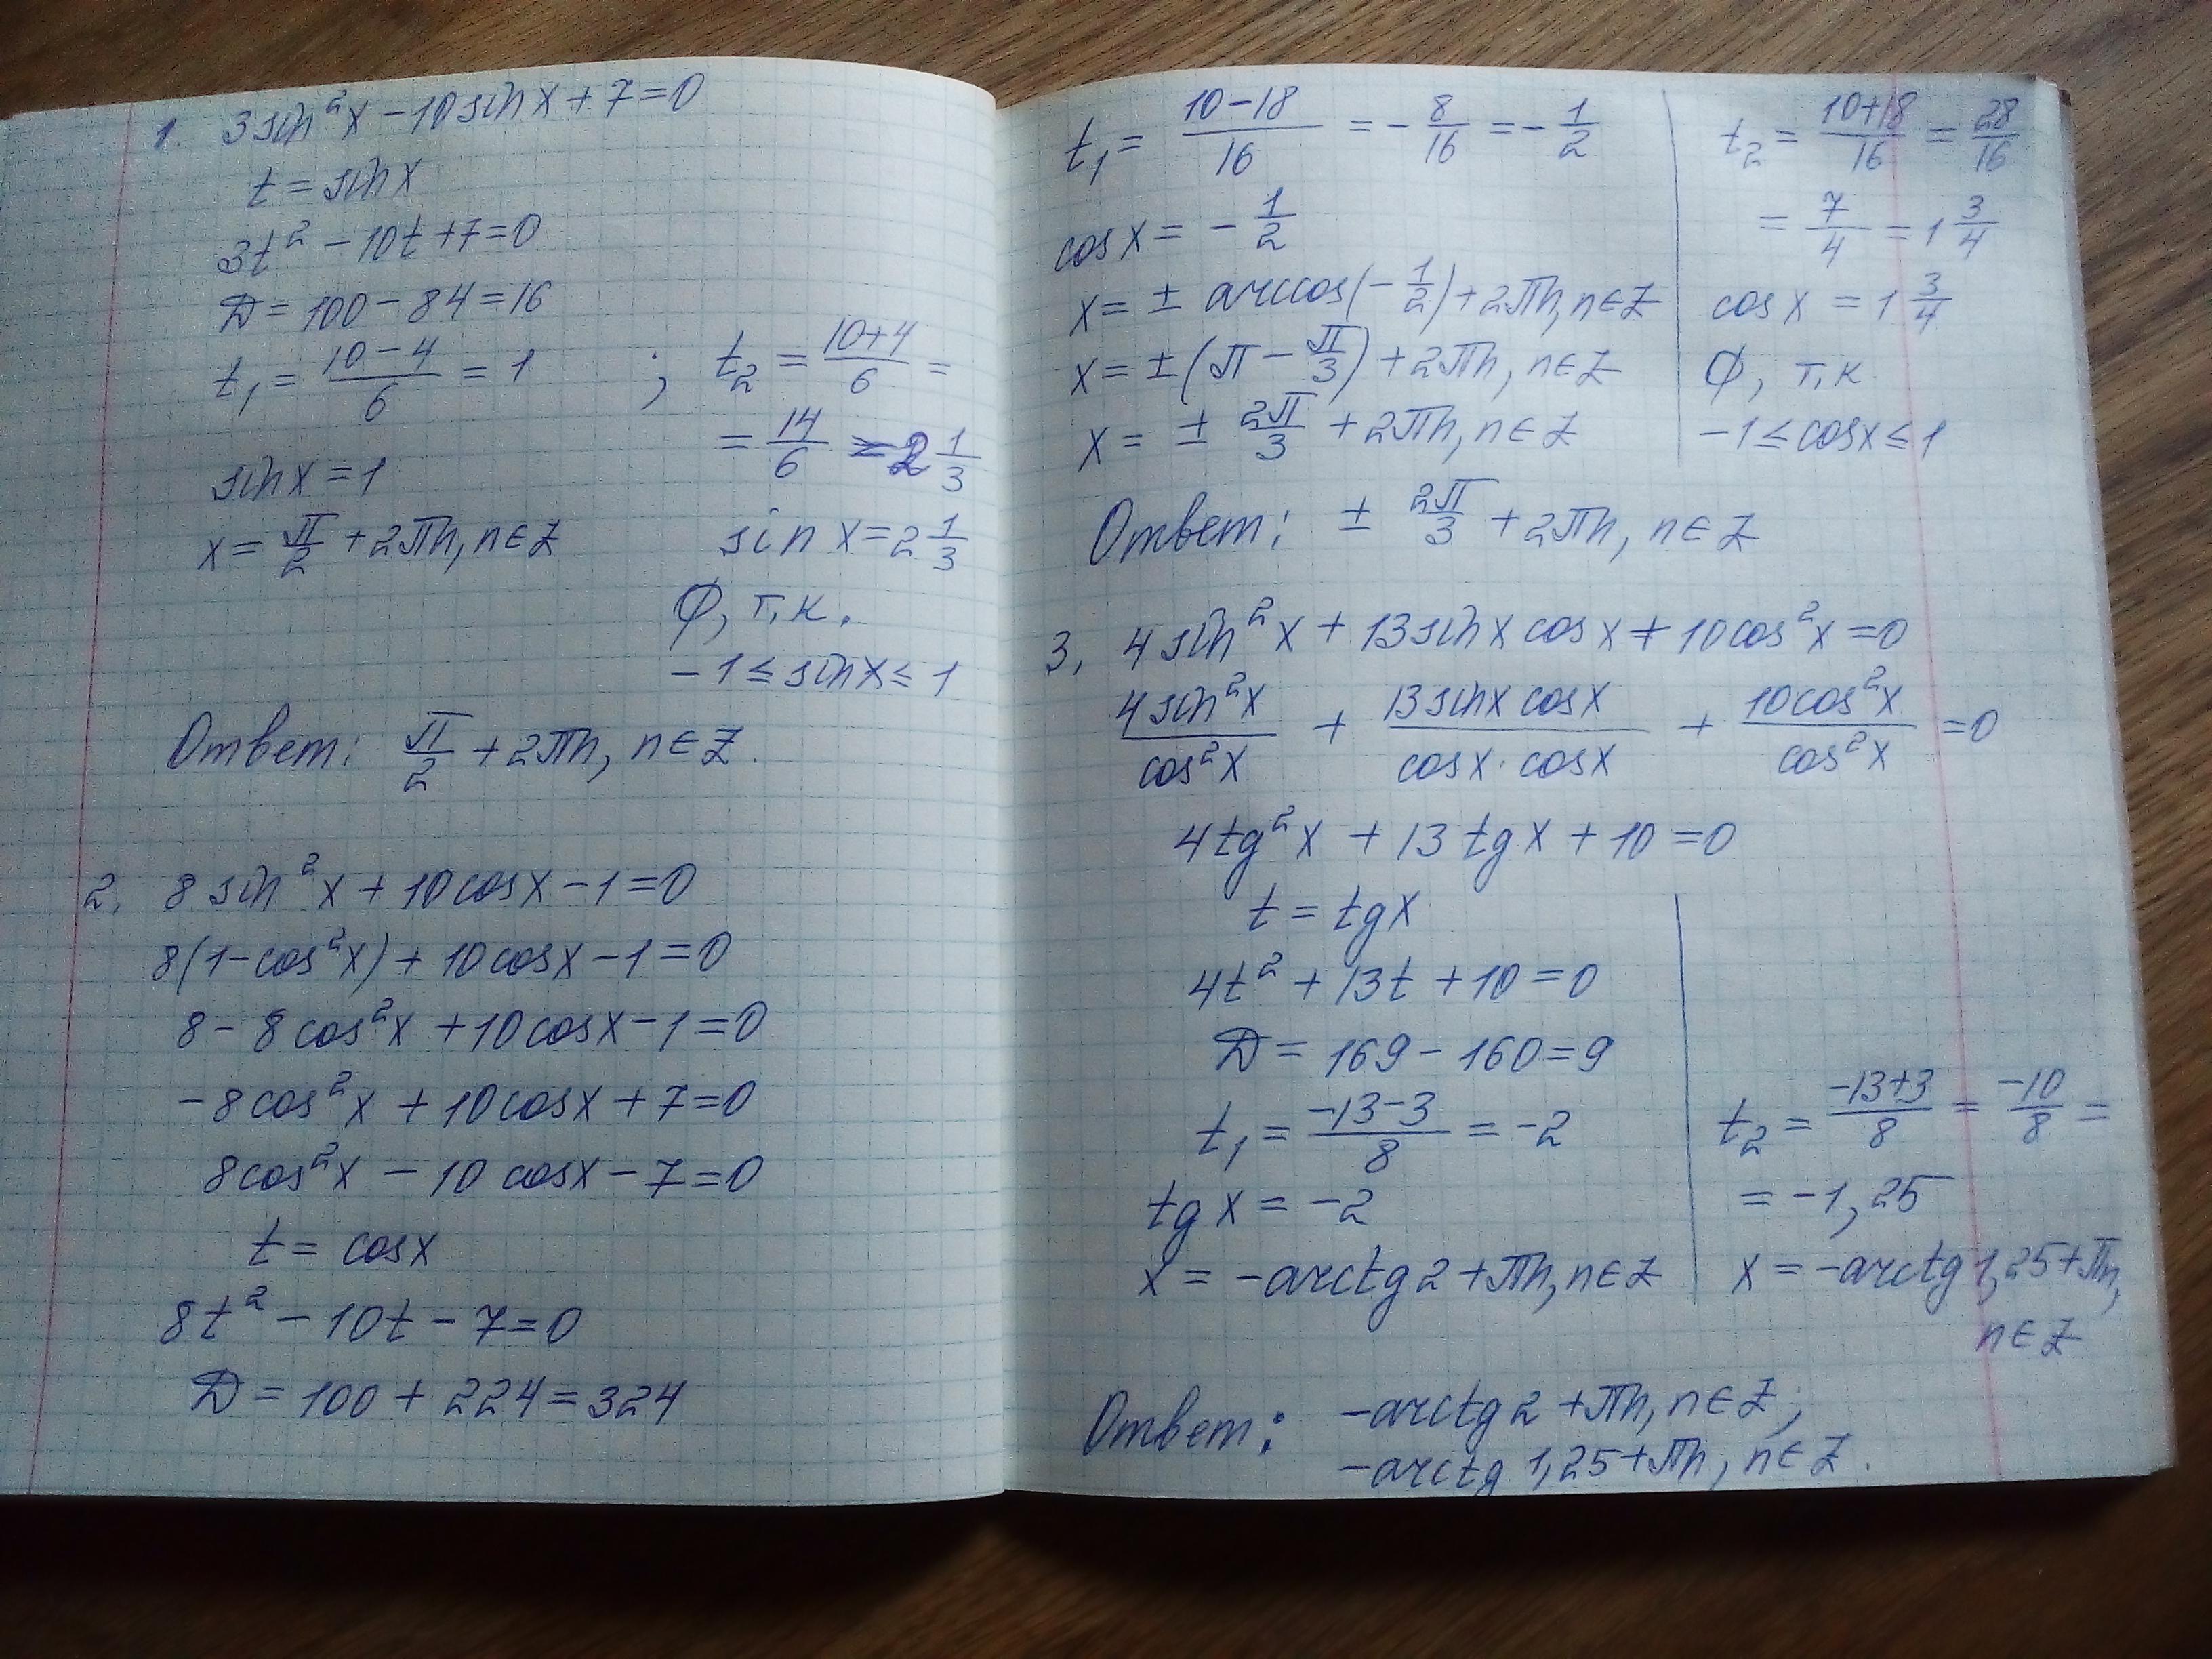 1. 3sin²x − 10sinx + 7 = 0
t = sinx
3t² − 10t + 7 = 0
D = 100 − 84 = 16
t₁ = (10 − 4)/6 = 1 ; t₂ = (10+4)/6 =
= 14/6 = 2 1/3
sinx = 1
x = π/2 + 2πn, n∈Z
sin x = 2 1/3
∅, т.к.
−1 ≤ sinx ≤ 1
Ответ: π/2 + 2πn, n∈Z.
2. 8 sin²x + 10cosx − 1 = 0
8(1−cos²x) + 10cosx − 1 = 0
8 − 8cos²x + 10cosx − 1 = 0
−8cos²x + 10cosx + 7 = 0
8cos²x − 10 cosx − 7 = 0
t = cosx
8t² − 10t − 7 = 0
D = 100 + 224 = 324
t₁ = (10−18)/16 = −8/16 = −1/2
cosx = −1/2
x = ± arccos(−1/2) + 2πn, n∈Z
x = ±(π − π/3) + 2πn, n∈Z
x = ± 2π/3 + 2πn, n∈Z
t₂ = (10+18)/16 = 28/16
= 7/4 = 1 3/4
cosx = 1 3/4
∅, т.к.
−1 ≤ cosx ≤ 1
Ответ: ± 2π/3 + 2πn, n∈Z
3. 4sin²x + 13sinx cosx + 10cos²x = 0
4sin²x/cos²x + 13sinx cosx/cosx·cosx + 10cos²x/cos²x = 0
4tg²x + 13 tgx + 10 = 0
t = tgx
4t² + 13t + 10 = 0
D = 169 − 160 = 9
t₁ = (−13−3)/8 = −2
tgx = −2
x = −arctg2 + πn, n∈Z
t₂ = (−13+3)/8 = −10/8 =
= −1,25
x = −arctg1,25 + πn,
n∈Z
Ответ: −arctg2 + πn, n∈Z;
−arctg 1,25 + πn, n∈Z.